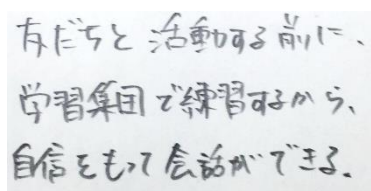 友だちと活動する前に、
学習集団で練習するから、
自信をもって会話ができる。